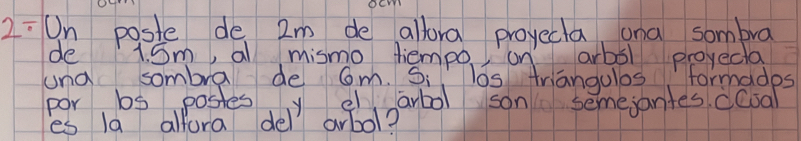 2= Un poste de 2m de altora proyecta una sombra
de 1.5m, al mismo tiempo, un arbol proyecta
una sombra de 6m. Si los triángulos formados
por los postes y el árbol son semejantes. ¿Cual
es la altura del arbol?